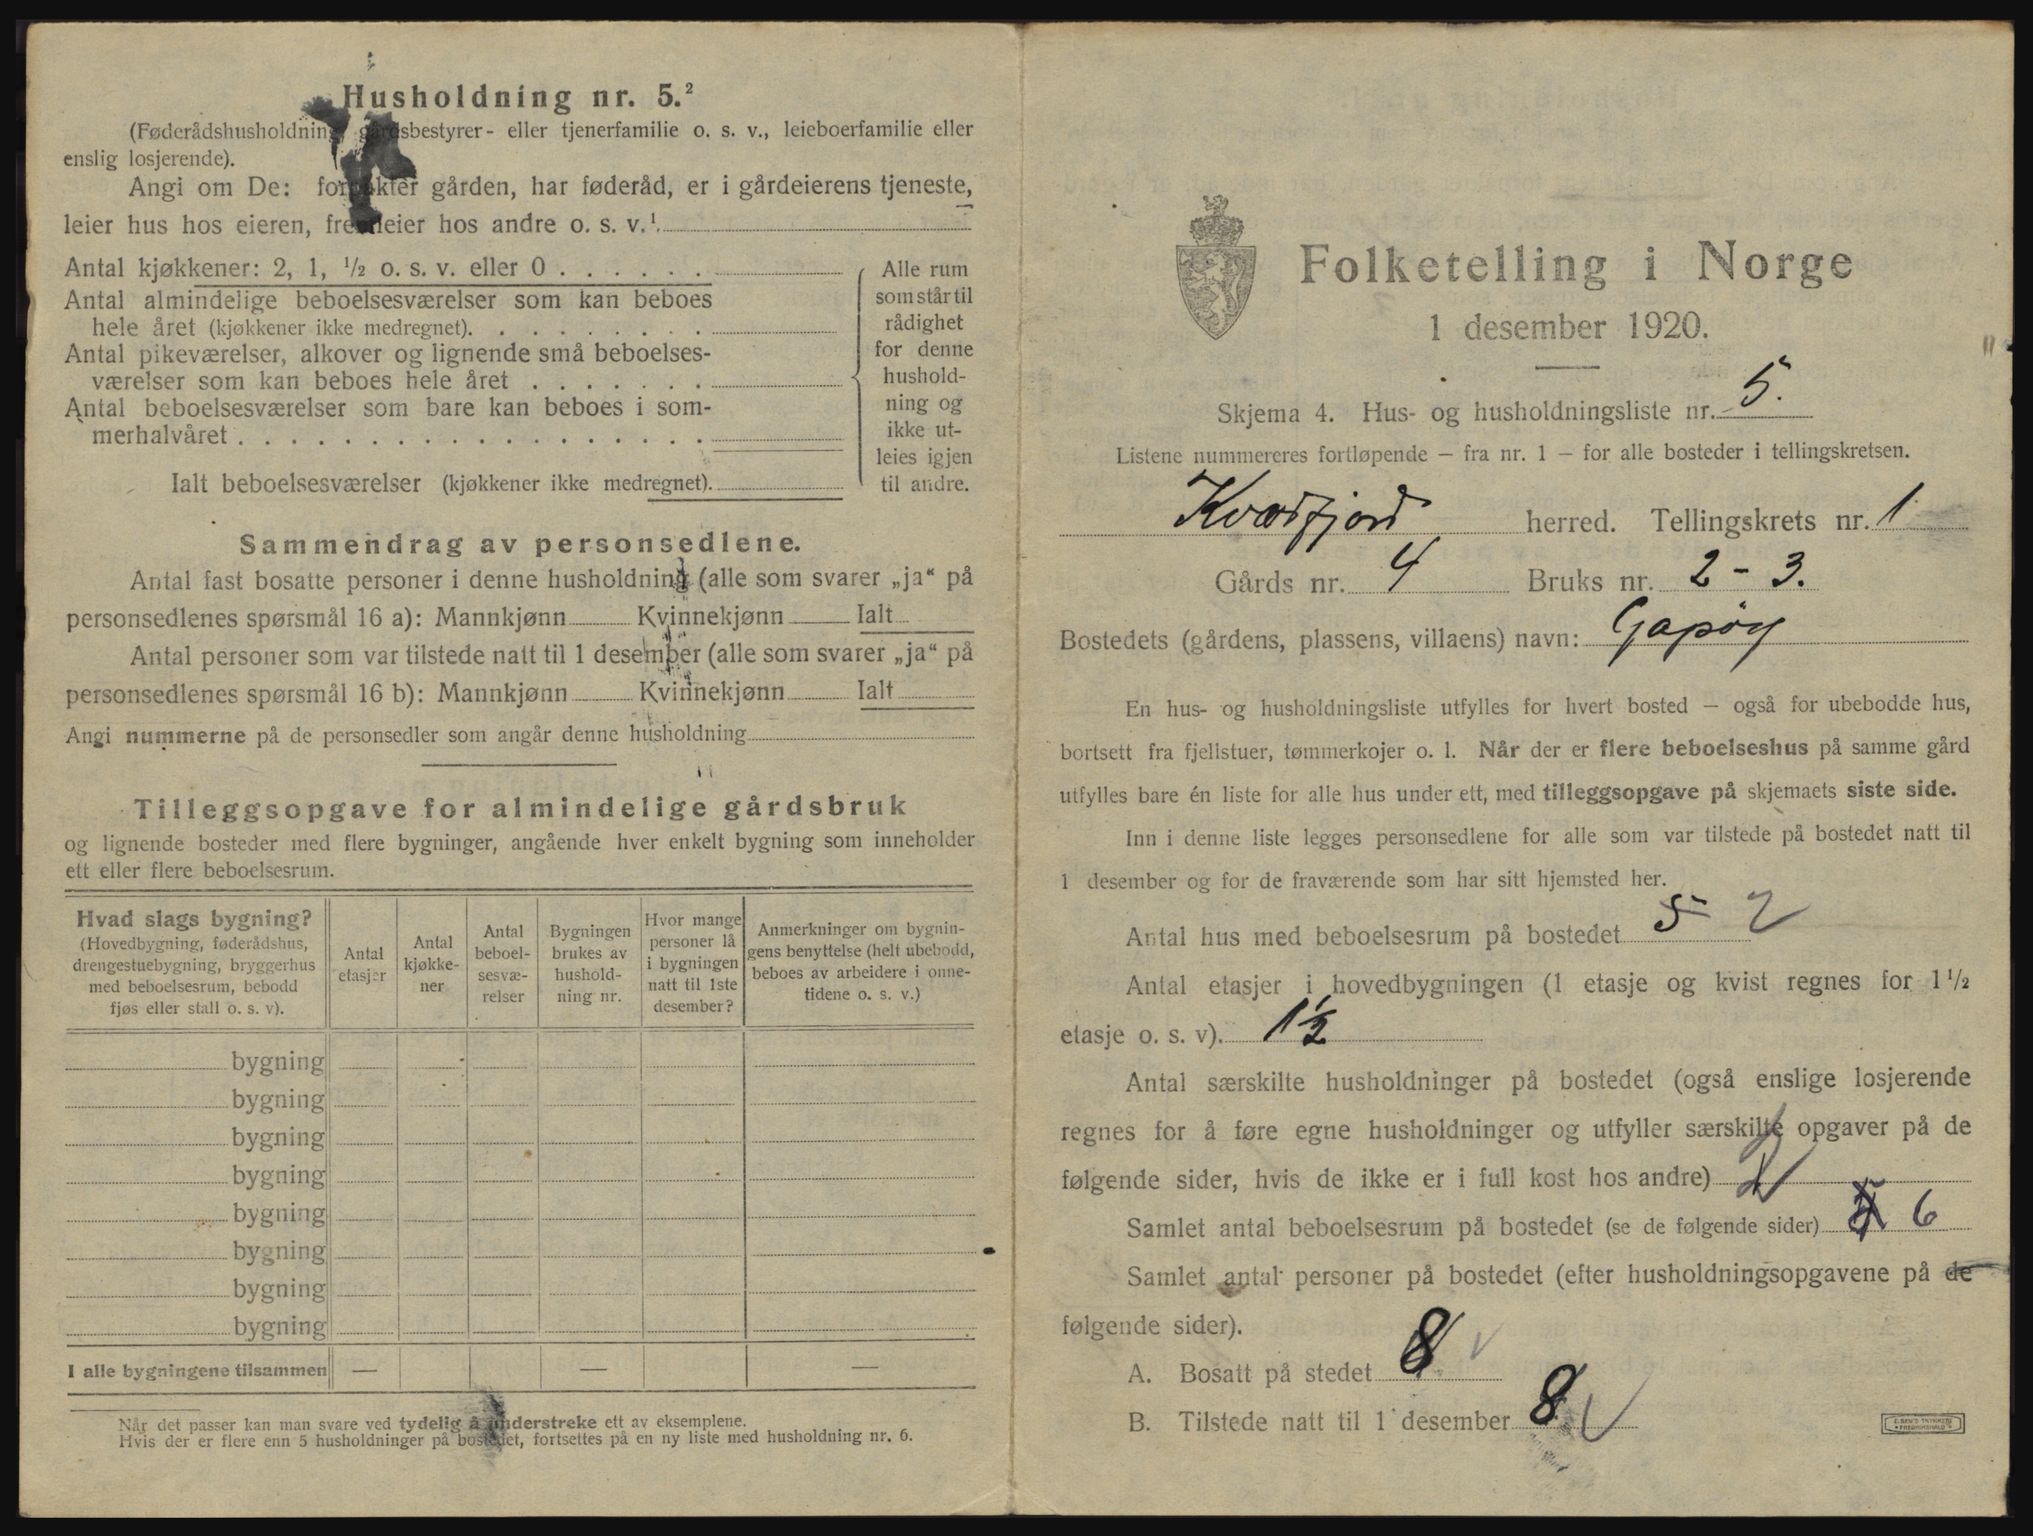 Husholdning nr. 5.²
(Føderådshusholdning, gårdsbestyrer- eller tjenerfamilie o. s. v., leieboerfamilie eller
enslig losjerende).
Angi om De: forpakter gården, har føderåd, er i gårdeierens tjeneste,
leier hus hos eieren, fremleier hos andre o. s. v.¹
Antal kjøkkener: 2, 1, ½ o. s. v. eller 0 . . . . . .
Antal almindelige beboelsesværelser som kan beboes
hele året (kjøkkener ikke medregnet). . . . . . . . .
Antal pikeværelser, alkover og lignende små beboelses-
værelser som kan beboes hele året . . . . . . .
Antal beboelsesværelser som bare kan beboes i som-
merhalvåret . . . . . . . . . . . . . . . . . .
Ialt beboelsesværelser (kjøkkener ikke medregnet).
Alle rum
som står til
rådighet
for denne
hushold-
ning og
ikke ut-
leies igjen
til andre.
Sammendrag av personsedlene.
Antal fast bosatte personer i denne husholdning (alle som svarer „ja“ på
personsedlenes spørsmål 16 a): Mannkjønn Kvinnekjønn Ialt
Antal personer som var tilstede natt til 1 desember (alle som svarer „ja“ på
personsedlenes spørsmål 16 b): Mannkjønn Kvinnekjønn Ialt
Angi nummerne på de personsedler som angår denne husholdning
Tilleggsopgave for almindelige gårdsbruk
og lignende bosteder med flere bygninger, angående hver enkelt bygning som inneholder
ett eller flere beboelsesrum.
Hvad slags bygning?
(Hovedbygning, føderådshus,
drengestuebygning, bryggerhus
med beboelsesrum, bebodd
fjøs eller stall o. s. v).
Antal
etasjer
Antal
kjøkke-
ner
Antal
beboel-
sesvæ-
relser
Bygningen
brukes av
hushold-
ning nr.
Hvor mange
personer lå
i bygningen
natt til 1ste
desember?
Anmerkninger om bygnin-
gens benyttelse (helt ubebodd,
beboes av arbeidere i onne-
tidene o. s. v.)
bygning
bygning
bygning
bygning
bygning
bygning
bygning
bygning
I alle bygningene tilsammen — — —
Når det passer kan man svare ved tydelig å understreke ett av eksemplene.
Hvis der er flere enn 5 husholdninger på bostedet, fortsettes på en ny liste med husholdning nr. 6.
Folketelling i Norge
1 desember 1920.
Skjema 4. Hus- og husholdningsliste nr. 5.
Listene nummereres fortløpende – fra nr. 1 – for alle bosteder i tellingskretsen.
Kvædfjord herred. Tellingskrets nr. 1
Gårds nr. 4 Bruks nr. 2 - 3.
Bostedets (gårdens, plassens, villaens) navn: Gapøy
En hus- og husholdningsliste utfylles for hvert bosted – også for ubebodde hus,
bortsett fra fjellstuer, tømmerkojer o. l. Når der er flere beboelseshus på samme gård
utfylles bare én liste for alle hus under ett, med tilleggsopgave på skjemaets siste side.
Inn i denne liste legges personsedlene for alle som var tilstede på bostedet natt til
1 desember og for de fraværende som har sitt hjemsted her.
Antal hus med beboelsesrum på bostedet 5 2
Antal etasjer i hovedbygningen (1 etasje og kvist regnes for 1½
etasje o. s. v). 1½
Antal særskilte husholdninger på bostedet (også enslige losjerende
regnes for å føre egne husholdninger og utfyller særskilte opgaver på de
følgende sider, hvis de ikke er i full kost hos andre)
Samlet antal beboelsesrum på bostedet (se de følgende sider) 6
Samlet antal personer på bostedet (efter husholdningsopgavene på de
følgende sider).
A. Bosatt på stedet 8
B. Tilstede natt til 1 desember 8